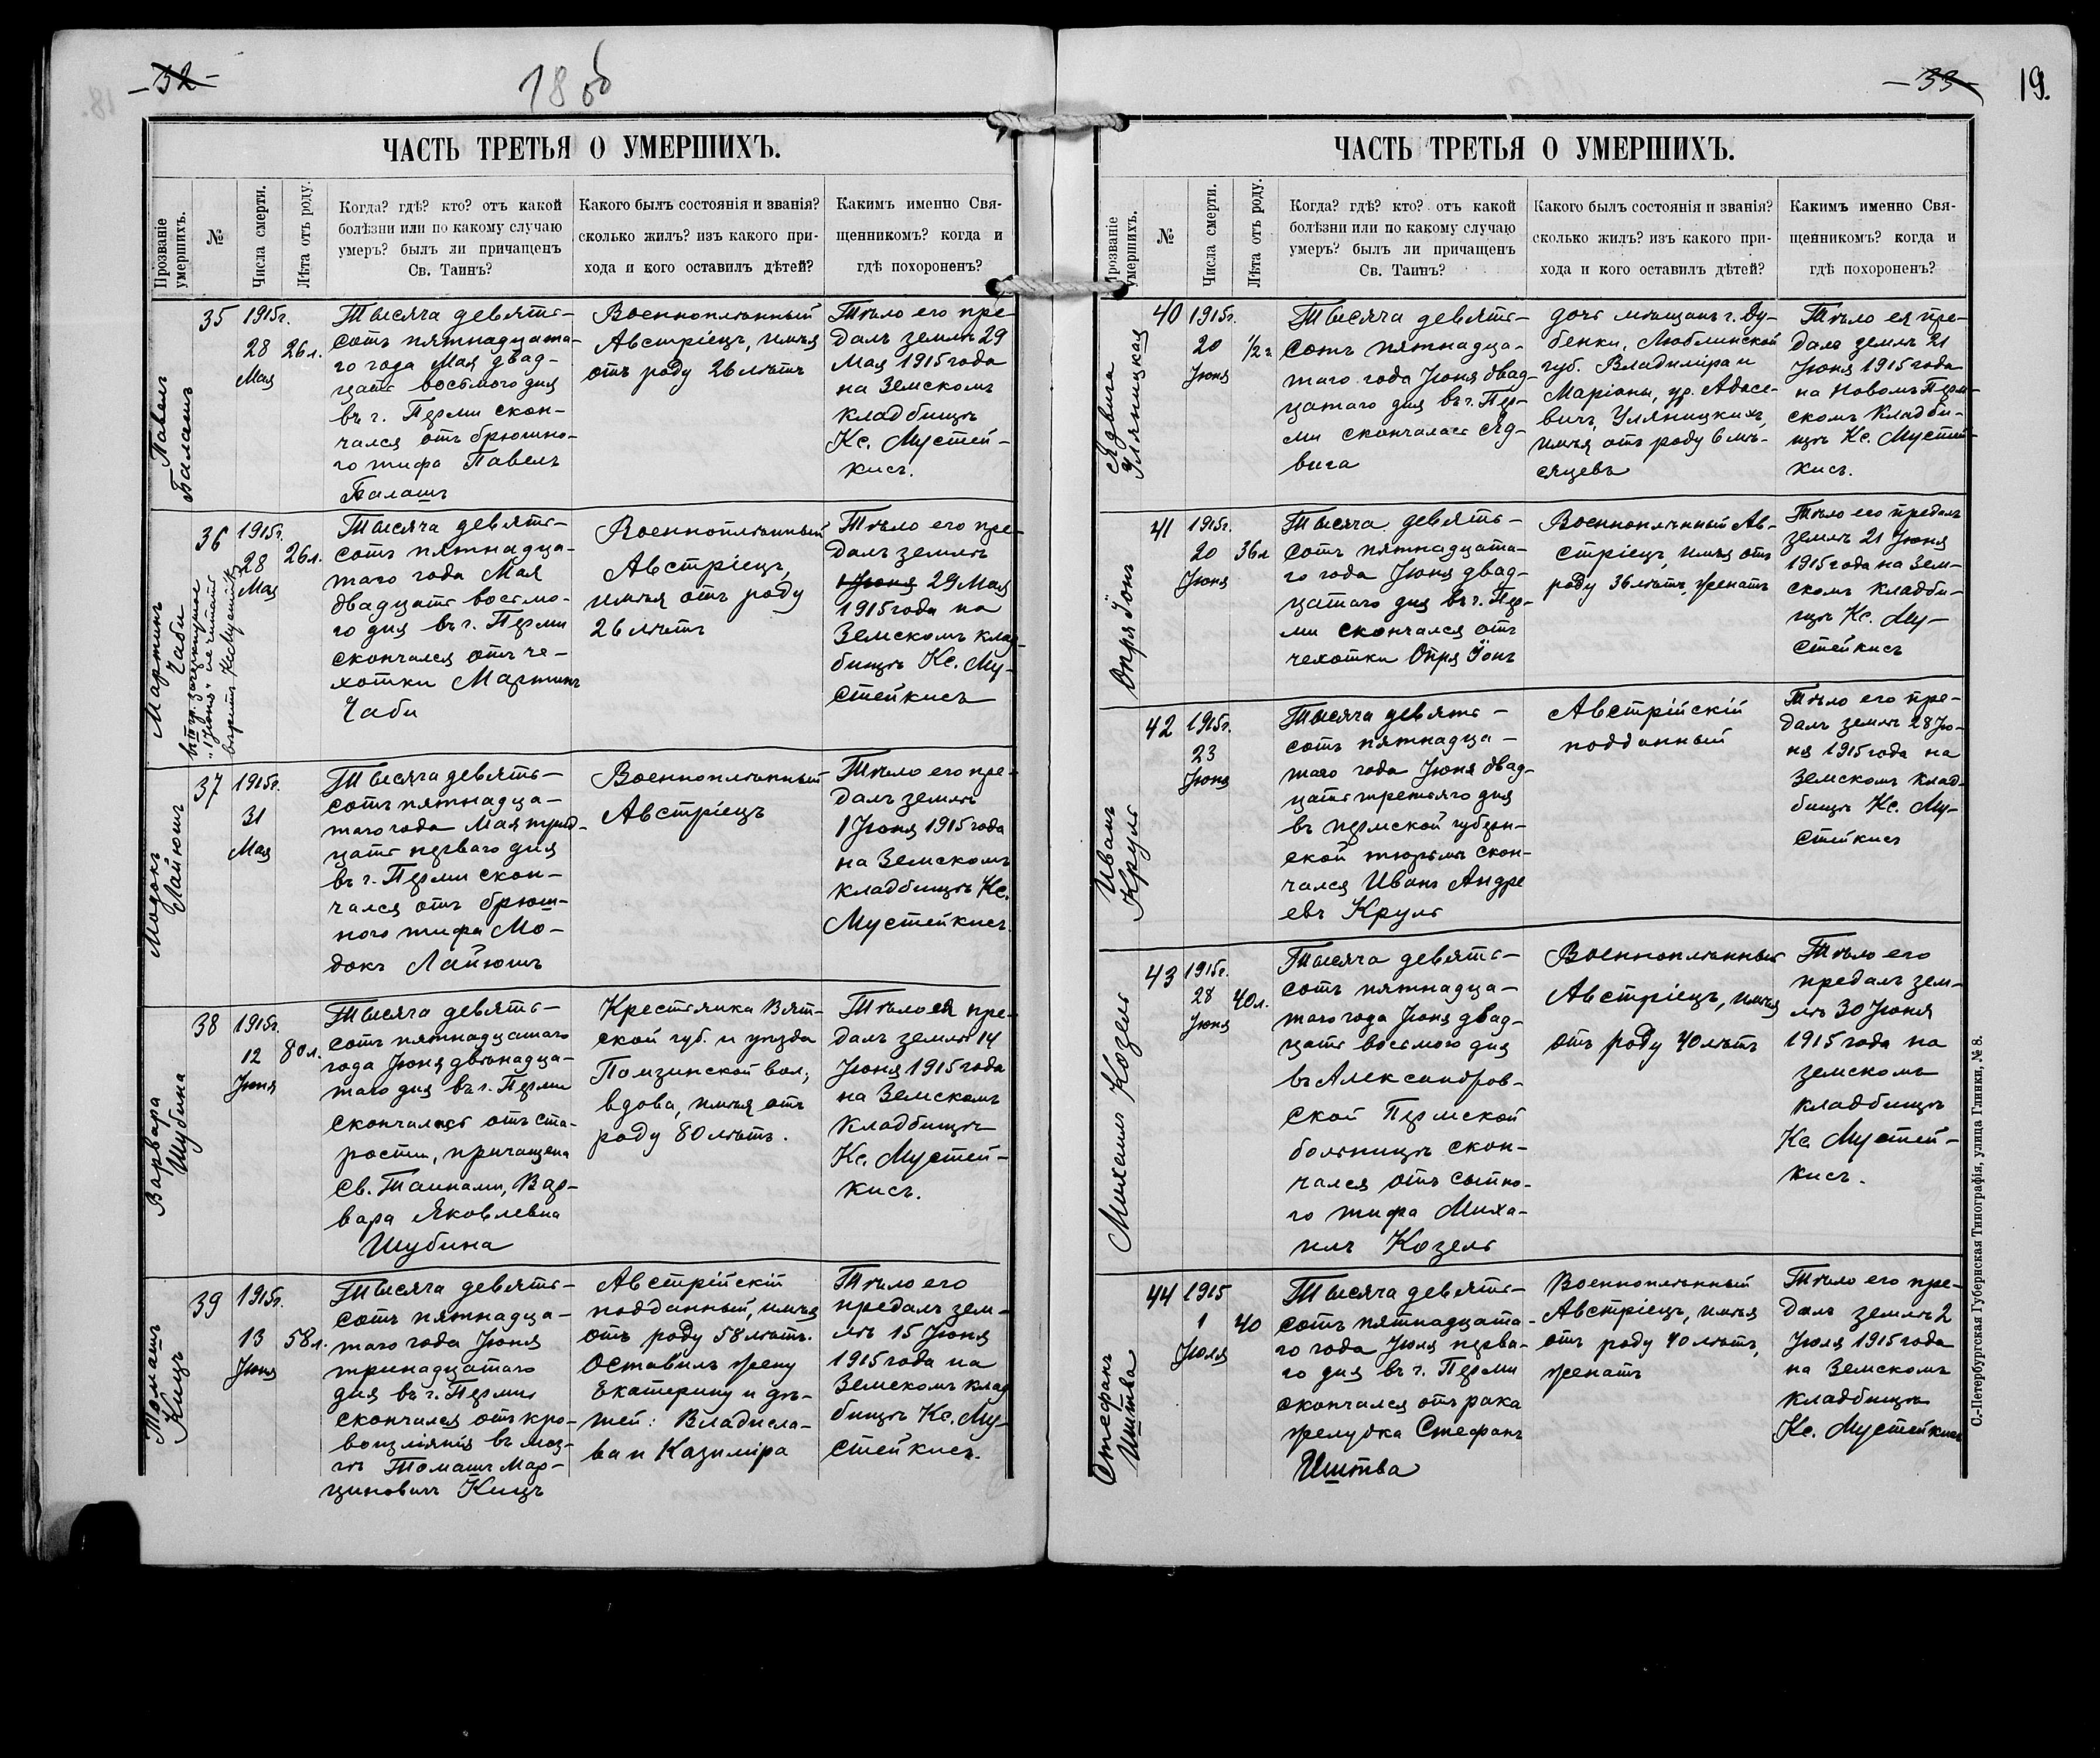 — 32 —
18 об
ЧАСТЬ ТРЕТЬЯ О УМЕРШИХЪ.
Прозваніе
умершихъ.
№
Числа смерти.
Лѣта отъ роду.
Когда? гдѣ? кто? отъ какой
болѣзни или по какому случаю
умеръ? былъ ли причащенъ
Св. Таинъ?
Какого былъ состоянія и званія?
сколько жилъ? изъ какого при-
хода и кого оставилъ дѣтей?
Какимъ именно Свя-
щенникомъ? когда и
гдѣ похороненъ?
Павелъ
Балашъ
35
1915г.
28
Мая
26л.
Тысяча девять-
сотъ пятнадцата-
го года Мая двад-
цать восьмого дня
въ г. Перми скон-
чался отъ брюшно-
го тифа Павелъ
Балашъ
Военноплѣнный
Австріецъ, имѣя
отъ роду 26 лѣтъ
Тѣло его пре-
далъ землѣ 29
Мая 1915 года
на Земскомъ
кладбищѣ
Кс. Мустей-
кисъ.
Мартинъ
Чаби
въ 3 гр. зачеркнутое
„1 Іюня“ не читать
вѣрить Кс Мустейкисъ
36
1915г.
28
Мая
26л.
Тысяча девять-
сотъ пятнадца-
таго года Мая
двадцать восьмо-
го дня въ г. Перми
скончался отъ че-
хотки Мартинъ
Чаби
Военноплѣнный
Австріецъ,
имѣя отъ роду
26 лѣтъ
Тѣло его пре-
далъ землѣ
1 Іюня 29 Мая
1915 года на
Земскомъ клад-
бищѣ Кс. Му-
стейкисъ
Модокъ
Лайюшъ
37
1915г.
31
Мая
Тысяча девять-
сотъ пятнадца-
таго года Мая трид-
цать перваго дня
въ г. Перми скон-
чался отъ брюш-
ного тифа Мо-
докъ Лайюшъ
Военноплѣнный
Австріецъ
Тѣло его пре-
далъ землѣ
1 Іюня 1915 года
на Земскомъ
кладбищѣ Кс.
Мустейкисъ.
Варвара
Шубина
38
1915г.
12
Іюня
80л.
Тысяча девять-
сотъ пятнадцатаго
года Іюня двѣнадца-
таго дня въ г. Перми
скончалась отъ ста-
рости, причащена
Св. Таинами, Вар-
вара Яковлевна
Шубина
Крестьянка Вят-
ской губ. и уѣзда
Помзинской вол,
вдова, имѣя отъ
роду 80 лѣтъ.
Тѣло ея пре-
далъ землѣ 14
Іюня 1915 года
на Земскомъ
кладбищѣ
Кс. Мустей-
кисъ.
Томашъ
Кицъ
39
1915г.
13
Іюня
58л.
Тысяча девять-
сотъ пятнадца-
таго года Іюня
тринадцатаго
дня въ г. Перми
скончался отъ кро-
воизліянія въ моз-
гъ Томашъ Мар-
циновичъ Кицъ
Австрійскій
подданный, имѣя
отъ роду 58 лѣтъ.
Оставилъ жену
Екатерину и дѣ-
тей: Владисла-
ва и Казиміра
Тѣло его
предалъ зем-
лѣ 15 Іюня
1915 года на
Земскомъ клад
бищѣ Кс. Му-
стейкисъ.
— 33 —
19.
ЧАСТЬ ТРЕТЬЯ О УМЕРШИХЪ.
Прозваніе
умершихъ.
№
Числа смерти.
Лѣта отъ роду.
Когда? гдѣ? кто? отъ какой
болѣзни или по какому случаю
умеръ? былъ ли причащенъ
Св. Таинъ?
Какого былъ состоянія и званія?
сколько жилъ? изъ какого при-
хода и кого оставилъ дѣтей?
Какимъ именно Свя-
щенникомъ? когда и
гдѣ похороненъ?
Ядвига
Уляницкая
40
1915г.
20
Іюня
1/2 г.
Тысяча девять-
сотъ пятнадца-
таго года Іюня двад-
цатаго дня въ г. Пер-
ми скончалась Яд-
вига
дочь мѣщанъ г. Ду-
бенки, Люблинской
губ. Владиміра и
Маріаны, ур. Адасе-
вичъ, Уляницкихъ,
имѣя отъ роду 6 мѣ-
сяцевъ
Тѣло ея пре-
далъ землѣ 21
Іюня 1915 года
на Новомъ Перм-
скомъ кладби-
щѣ Кс. Мустей-
кисъ.
Опря Іонъ
41
1915г.
20
Іюня
36л
Тысяча девять-
сотъ пятнадцата-
го года Іюня двад-
цатаго дня въ г. Пер-
ми скончался отъ
чехотки Опря Іонъ
Военноплѣнный Ав-
стріецъ, имѣя отъ
роду 36 лѣтъ, женатъ
Тѣло его предалъ
землѣ 21 Іюня
1915 года на Зем-
скомъ кладби-
щѣ Кс. Му-
стейкисъ
Иванъ
Круль
42
1915г.
23
Іюня
Тысяча девять-
сотъ пятнадца-
таго года Іюня двад-
цать третьяго дня
въ пермской губерн-
ской тюрьмѣ скон-
чался Иванъ Андре
евъ Круль
Австрійскій
подданный
Тѣло его пре-
далъ землѣ 28 Ію-
ня 1915 года на
Земскомъ клад-
бищѣ Кс. Му-
стейкисъ
Михаилъ Козелъ
43
1915г.
28
Іюня
40л.
Тысяча девять-
сотъ пятнадца-
таго года Іюня двад-
цать восьмого дня
въ Александров-
ской Пермской
больницѣ скон-
чался отъ сыпно-
го тифа Миха-
илъ Козелъ
Военноплѣнный
Австріецъ, имѣя
отъ роду 40 лѣтъ
Тѣло его
предалъ зем-
лѣ 30 Іюня
1915 года на
земскомъ
кладбищѣ
Кс Мустей-
кисъ.
Стефанъ
Иштва
44
1915
1
Іюля
40
Тысяча девять-
сотъ пятнадцата-
го года Іюля перва-
го дня въ г. Перми
скончался отъ рака
желудка Стефанъ
Иштва
Военноплѣнный
Австріецъ, имѣя
отъ роду 40 лѣтъ,
женатъ
Тѣло его пре-
далъ землѣ 2
Іюля 1915 года
на Земскомъ
кладбищѣ
Кс. Мустейкисъ
С.-Петербургская Губернская Типографія, улица Глинки, № 8.